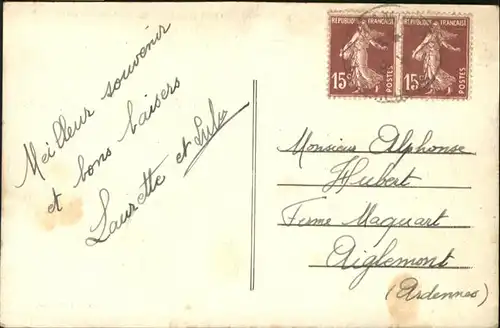 Meilleur souvenir
et bons baisers
Laurette et Lulu
RÉPUBLIQUE FRANÇAISE
15c
POSTES
RÉPUBLIQUE FRANÇAISE
15c
POSTES
Monsieur Alphonse
Hubert
Ferme Maquart
Aiglemont
(Ardennes)